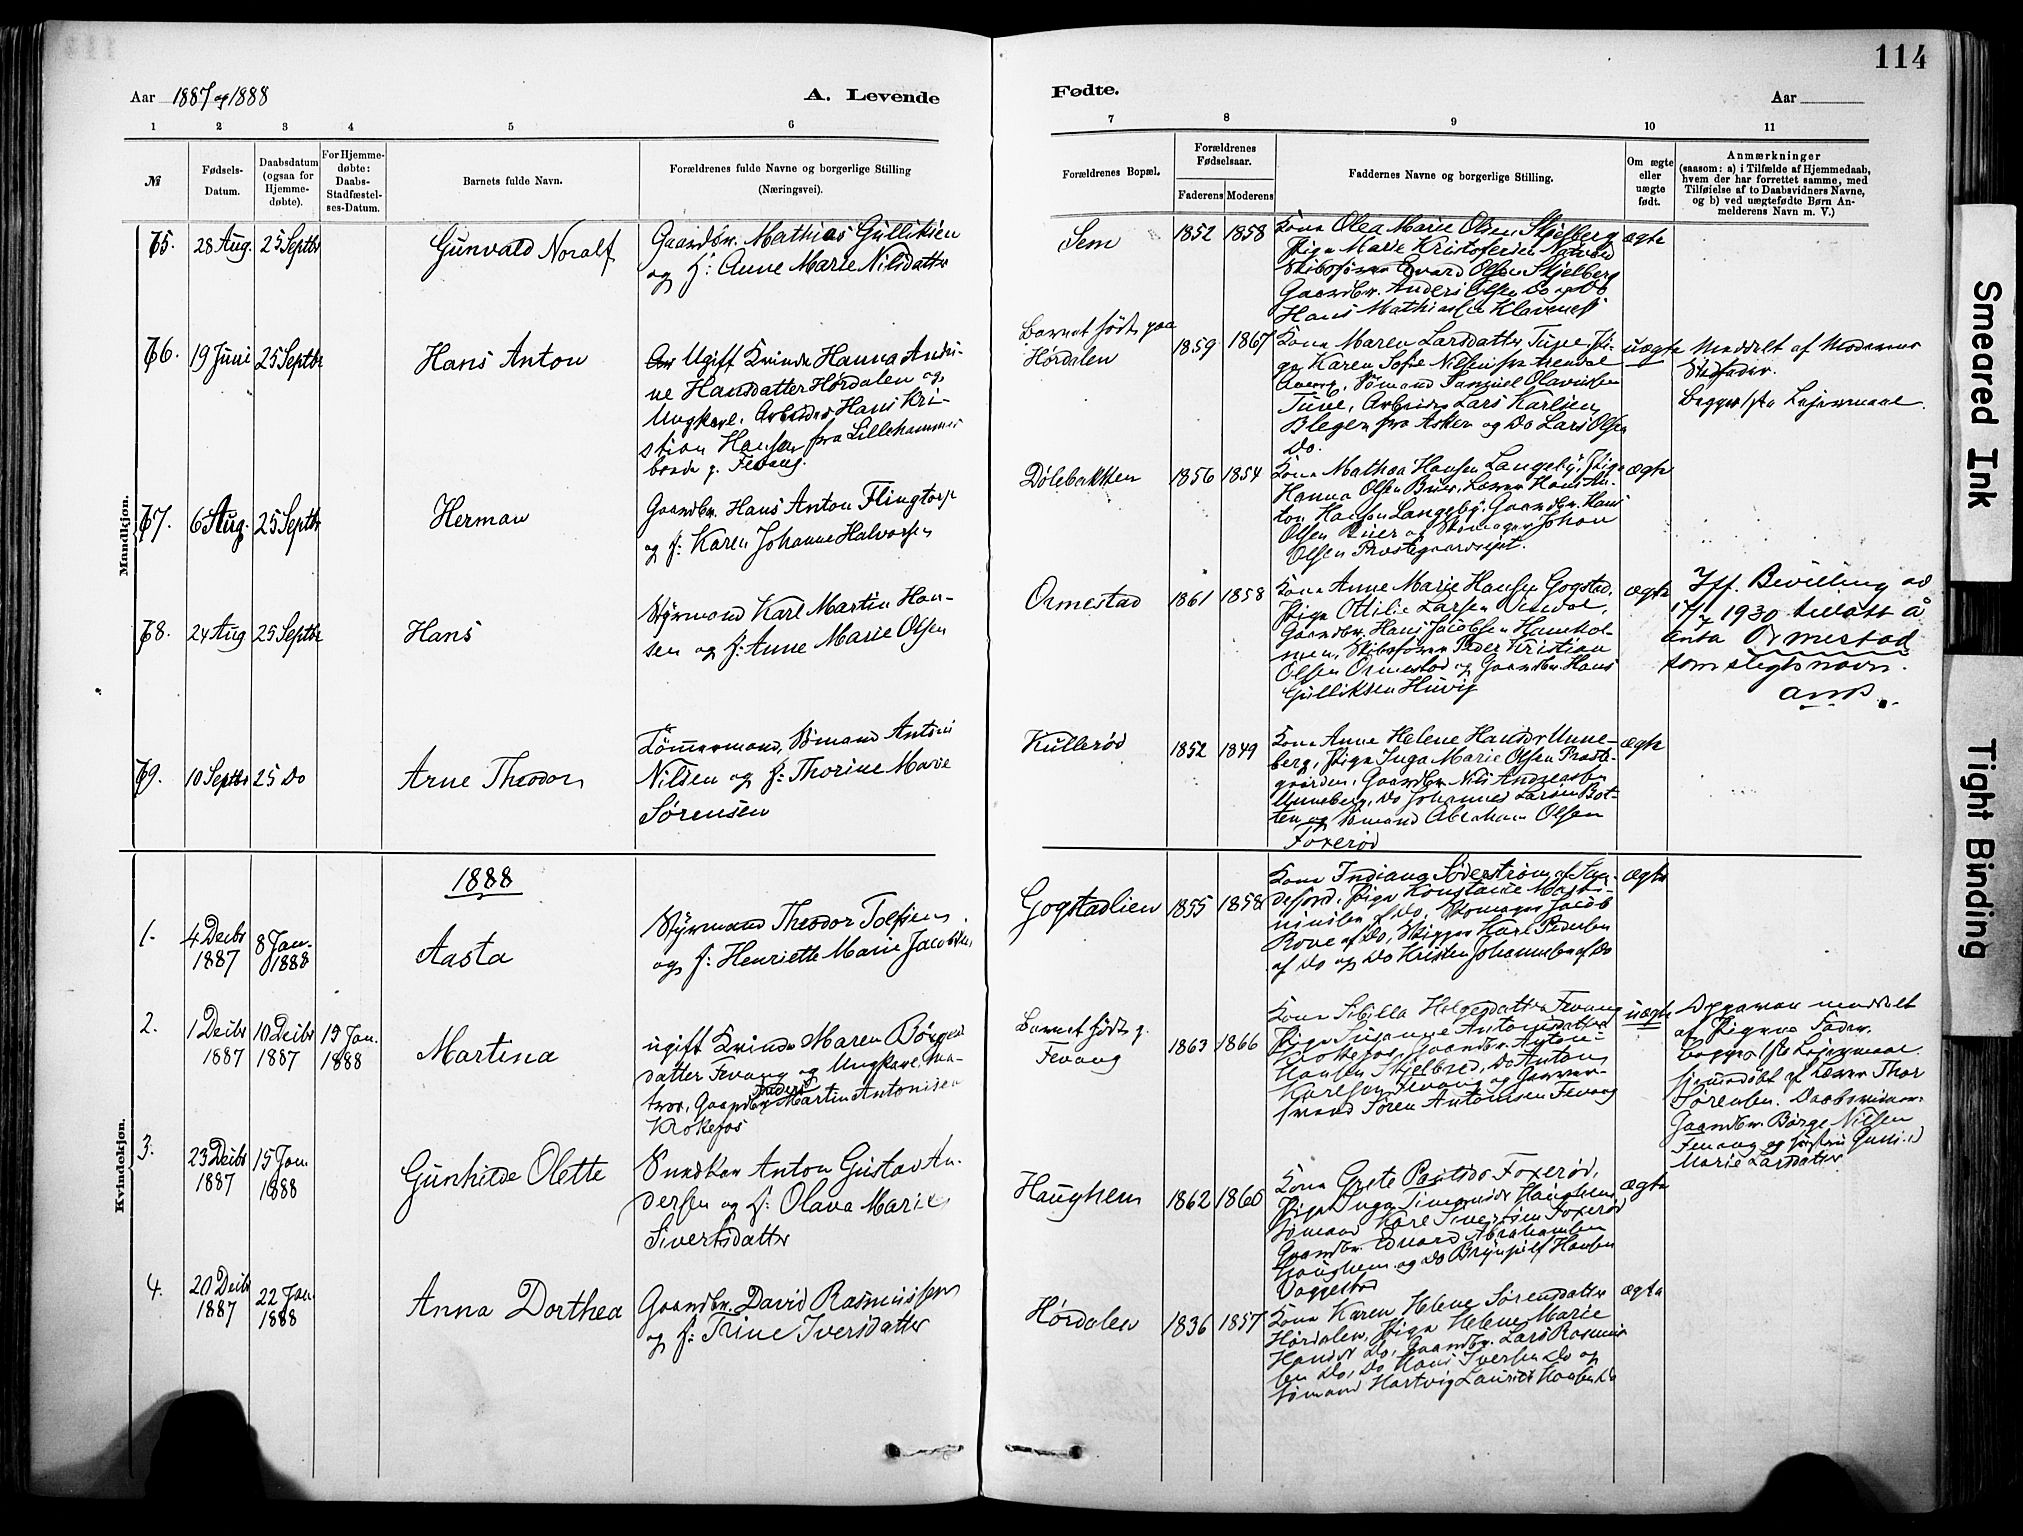 114
Aar 1887 og 1888
A. Levende
Fødte.
Aar
1 2 3 4 5 6 7 8 9 10 11
№
Fødsels-
Datum.
Daabsdatum
(ogsaa for
Hjemme-
døbte).
For Hjemme-
døbte:
Daabs-
Stadfæstel-
ses-Datum.
Barnets fulde Navn.
Forældrenes fulde Navne og borgerlige Stilling
(Næringsvei).
Forældrenes Bopæl.
Forældrenes
Fødselsaar.
Faderens Moderens
Faddernes Navne og borgerlige Stilling.
Om ægte
eller
uægte
født.
Anmærkninger
(saasom: a) i Tilfælde af Hjemmedaab,
hvem der har forrettet samme, med
Tilføielse af to Daabsvidners Navne,
og b) ved uægtefødte Børn An-
melderens Navn m. V.)
Mandkjøn.
75.
28 Aug.
25 Septbr
Gunvald Noralf
Gaardbr. Mathias Gulliksen
og h: Anne Marie Nilsdatter
Sem
1852
1858
Kona Olea Marie Olsen Skjelberg
Pige Marie Kristofersen
Skibsfører Edvard Olsen Skjelberg
Gaardbr. Anders Olsen Do og Do
Hans Mathiassen Klavenes
ægte
76.
19 Juni
25 Septbr
Hans Anton
Ugift Kvinde Hanna Andri-
ne Hansdatter Hørdalen og
Ungkarl, Arbeider Hans Kri-
stian Hansen fra Lillehammer
boende p. Fevang.
Barnet født paa
Hørdalen
1859
1867
Kona Maren Larsdatter Tuve, Pi-
ge Karen Sofie Nilsen fra Arendal
Sømand Samuel Olavessen
Tuve, Arbeider Lars Karlsen
Blegen fra Asker og Do Lars Olsen
Do.
uægte
Meddelt af Moderens
Stedfader.
Begges 1ste Leiermaal.
77.
6 Aug.
25 Septbr
Herman
Gaardbr. Hans Anton Flingtorp
og h: Karen Johanne Halvorsen
Dølebakken
1856
1854
Kona Mathea Hansen Langeby, Pige
Hanna Olsen Buer, Lærer Hans An-
ton Hansen Langeby, Gaardbr. Hans
Olsen Buer og Skomager Johan
Olsen Prestegaardseiet.
ægte
78.
24 Aug
25 Septbr
Hans
Styrmand Karl Martin Han-
sen og h: Anne Marie Olsen
Ormestad
1861
1858
Kona Anne Marie Hansen Gogstad,
Pige Otilie Larsen Unneval,
Gaardbr. Hans Jacobsen Hanehol-
men, Skibsfører Peder Kristian
Olsen Ormestad og Gaardbr. Hans
Gulliksen Huvig
ægte
Iflf. Bevilling av
17/7 1930 tillatt å
anta Ormestad
som slegtsnavn.
79.
10 Septbr
25 Do
Arne Theodor
Tømmermand, Sømand Anton
Nilsen og h: Thorine Marie
Sørensen
Kullerød
1852
1849
Kona Anne Helene Hansdr Unne-
berg, Pige Inga Marie Olsen Preste-
gaarden, Gaardbr. Nils Andreassen
Unneberg, Do Johannes Larsen Bot-
ten og Sømand Abraham Olsen
Foxerød
ægte
1888
Kvindekjøn.
1.
4 Decbr
1887
8 Jan.
1888
Aasta
Styrmand Theodor Tolfsen
og h: Henriette Marie Jacobsen
Gogstadlien
1855
1858
Kona Indiana Søderstrøm af San-
defjord, Pige Konstanse Marti-
niusen af Do, Skomager Jacob
Rove af Do, Skipper Karl Pedersen
af Do og Do Kristen Johannesen af Do
ægte
2.
1 Decbr
1887
10 Decbr
1887
15 Jan.
1888
Martina
ugift Kvinde Maren Børges-
datter Fevang og Ungkarl, Ma-
tros, Gaardbr. Martin Antonisen
Krokefos
Barnet født p.
Fevang
1863
1866
Kona Sibilla Helgesdatter Fevang
Pige Susanne Antonisdatter
Krokefos, Gaardbr. Anton
Hansen Skjelbred, Do Anton
Karlsen Fevang og Garver-
svend Søren Antonisen Fevang
uægte
Opgaven meddelt
af Pigens Fader.
Begges 1ste Leiermaal.
Hjemdøbt af Lærer Thor
Sørensen. Daabsvidner
Gaardbr. Børge Nilsen
Fevang og Hustru
Marie Larsdatter
3.
23 Decbr
1887
15 Jan.
1888
Gunhilde Olette
Snedker Anton Gustav An-
dersen og h: Olava Marie
Sivertsdatter
Haughem
1862
1860
Kona Grete Paulsdr Foxerød,
Pige Inga Simensdr Haughem,
Sømand Karl Sivertsen Foxerød
Gaardbr. Edvard Abrahamsen
Haughem og Do Brynjulf Hansen
Vaggestad
ægte
4.
20 Decbr
1887
22 Jan.
1888
Anna Dorthea
Gaardbr. David Rasmussen
og h: Trine Iversdatter
Hørdalen
1836
1857
Kona Karen Helene Sørensdatter
Hørdalen, Pige Helene Marie
Hansdr Do, Gaardbr. Lars Rasmus-
sen Do, Do Hans Iversen Do og
Sømand Hartvig Laurits Hansen Do
ægte
Smeared Ink
Tight Binding